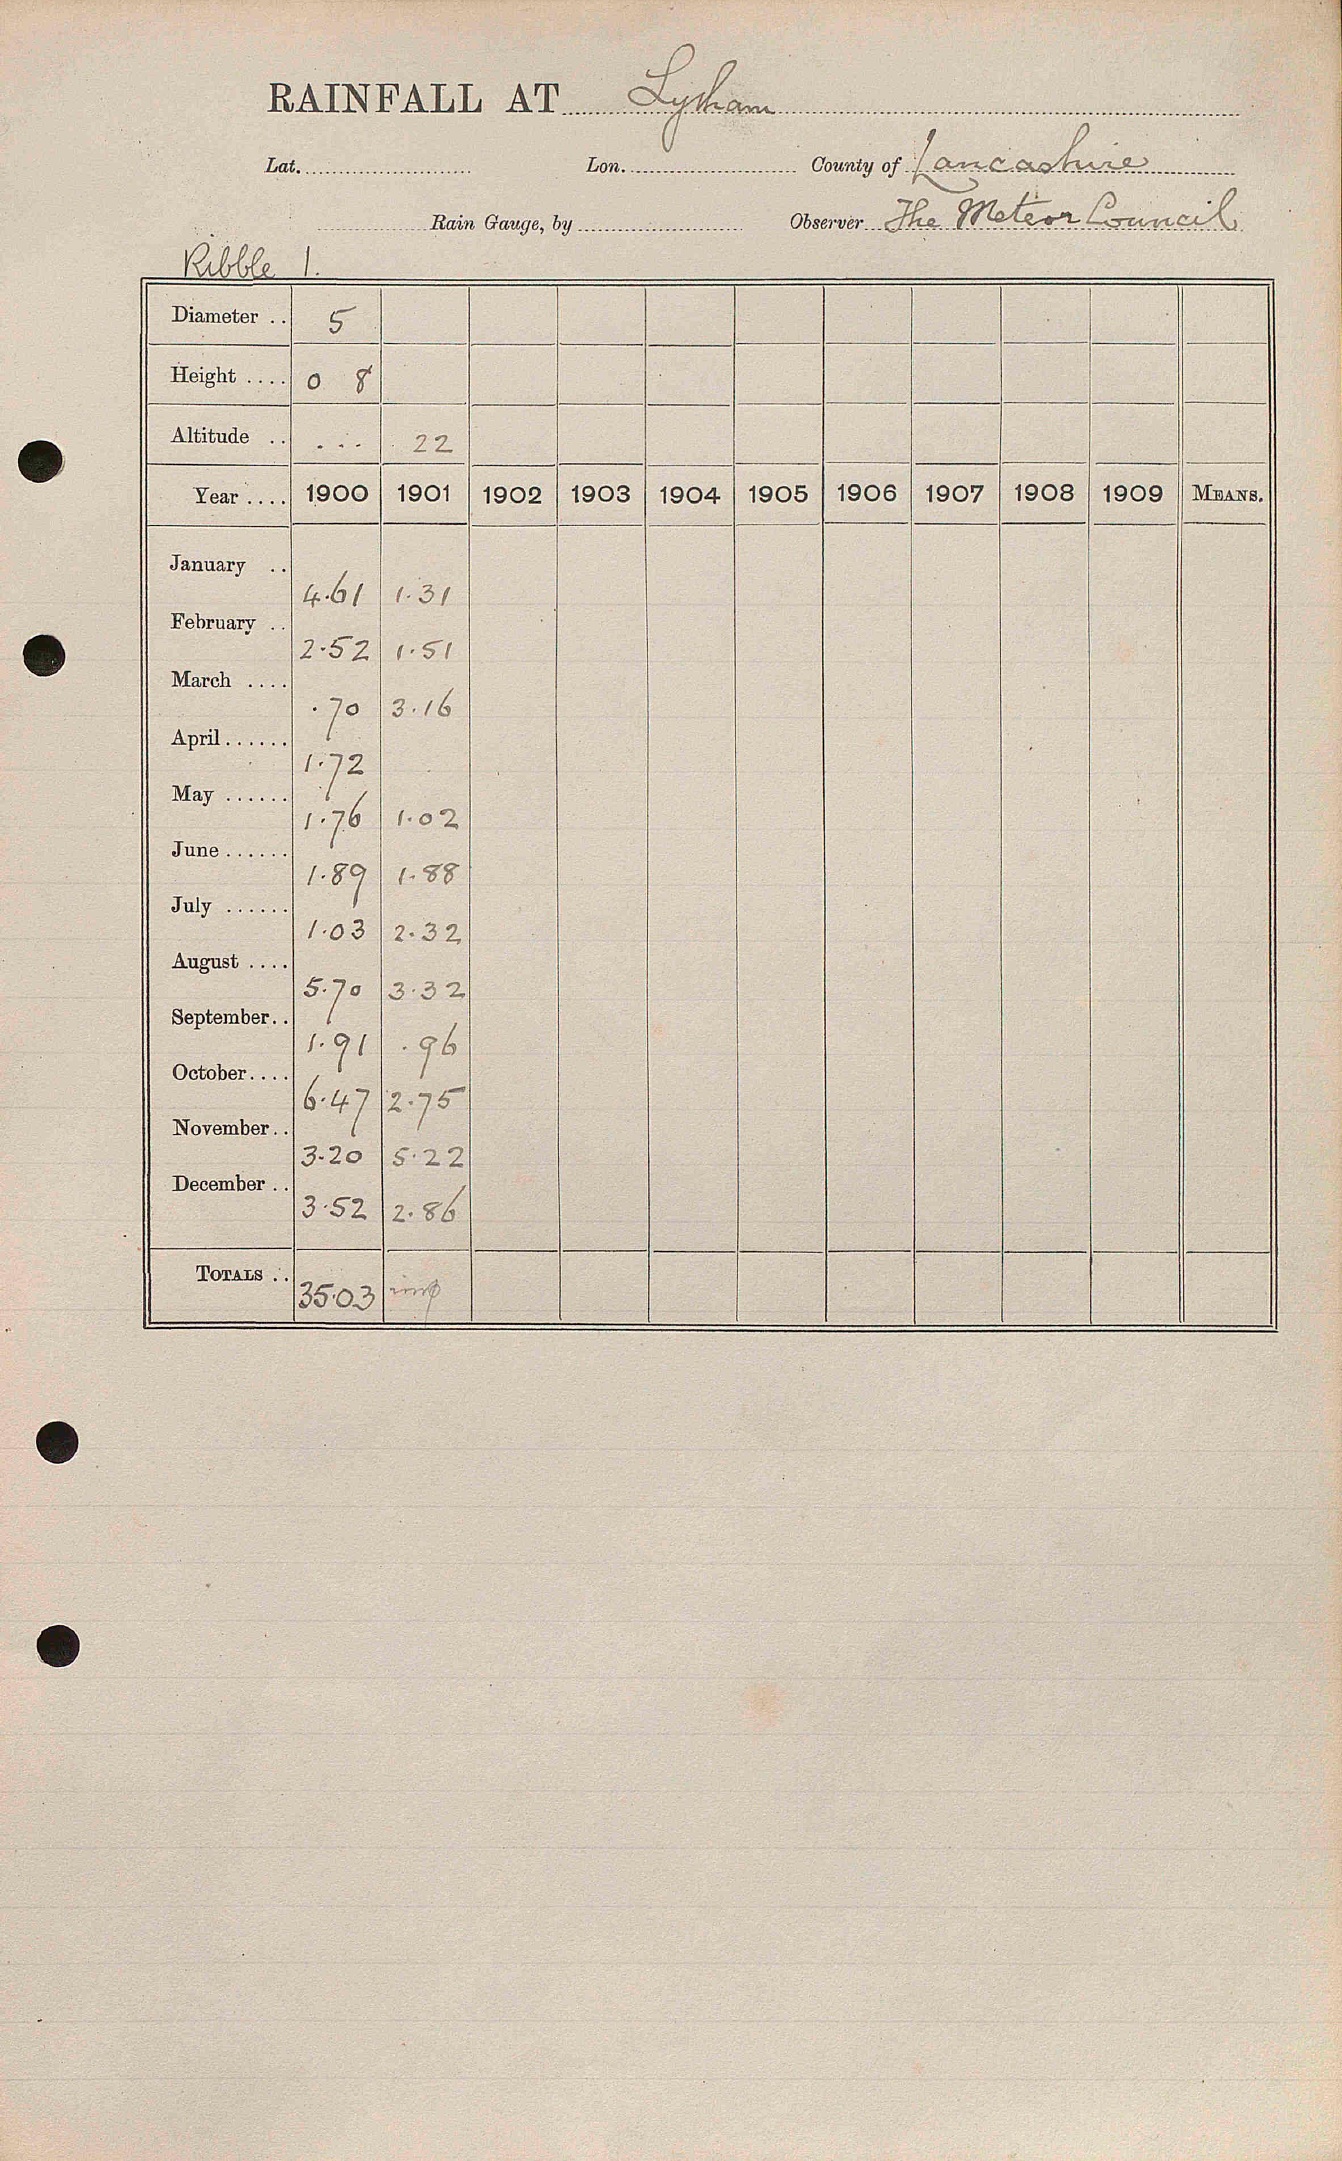 RAINFALL AT Lytham
Lat. Lon. County of Lancashire
Rain Gauge, by Observer The Meteor Council
Ribble 1.
Diameter .. 5
Height .... 0 8
Altitude .. ... 22
Year .... 1900 1901 1902 1903 1904 1905 1906 1907 1908 1909 MEANS.
January .. 4.61 1.31
February .. 2.52 1.51
March .... .70 3.16
April...... 1.72
May ...... 1.76 1.02
June...... 1.89 1.88
July ...... 1.03 2.32
August .... 5.70 3.32
September.. 1.91 .96
October.... 6.47 2.75
November.. 3.20 5.22
December .. 3.52 2.86
TOTALS .. 35.03 imp